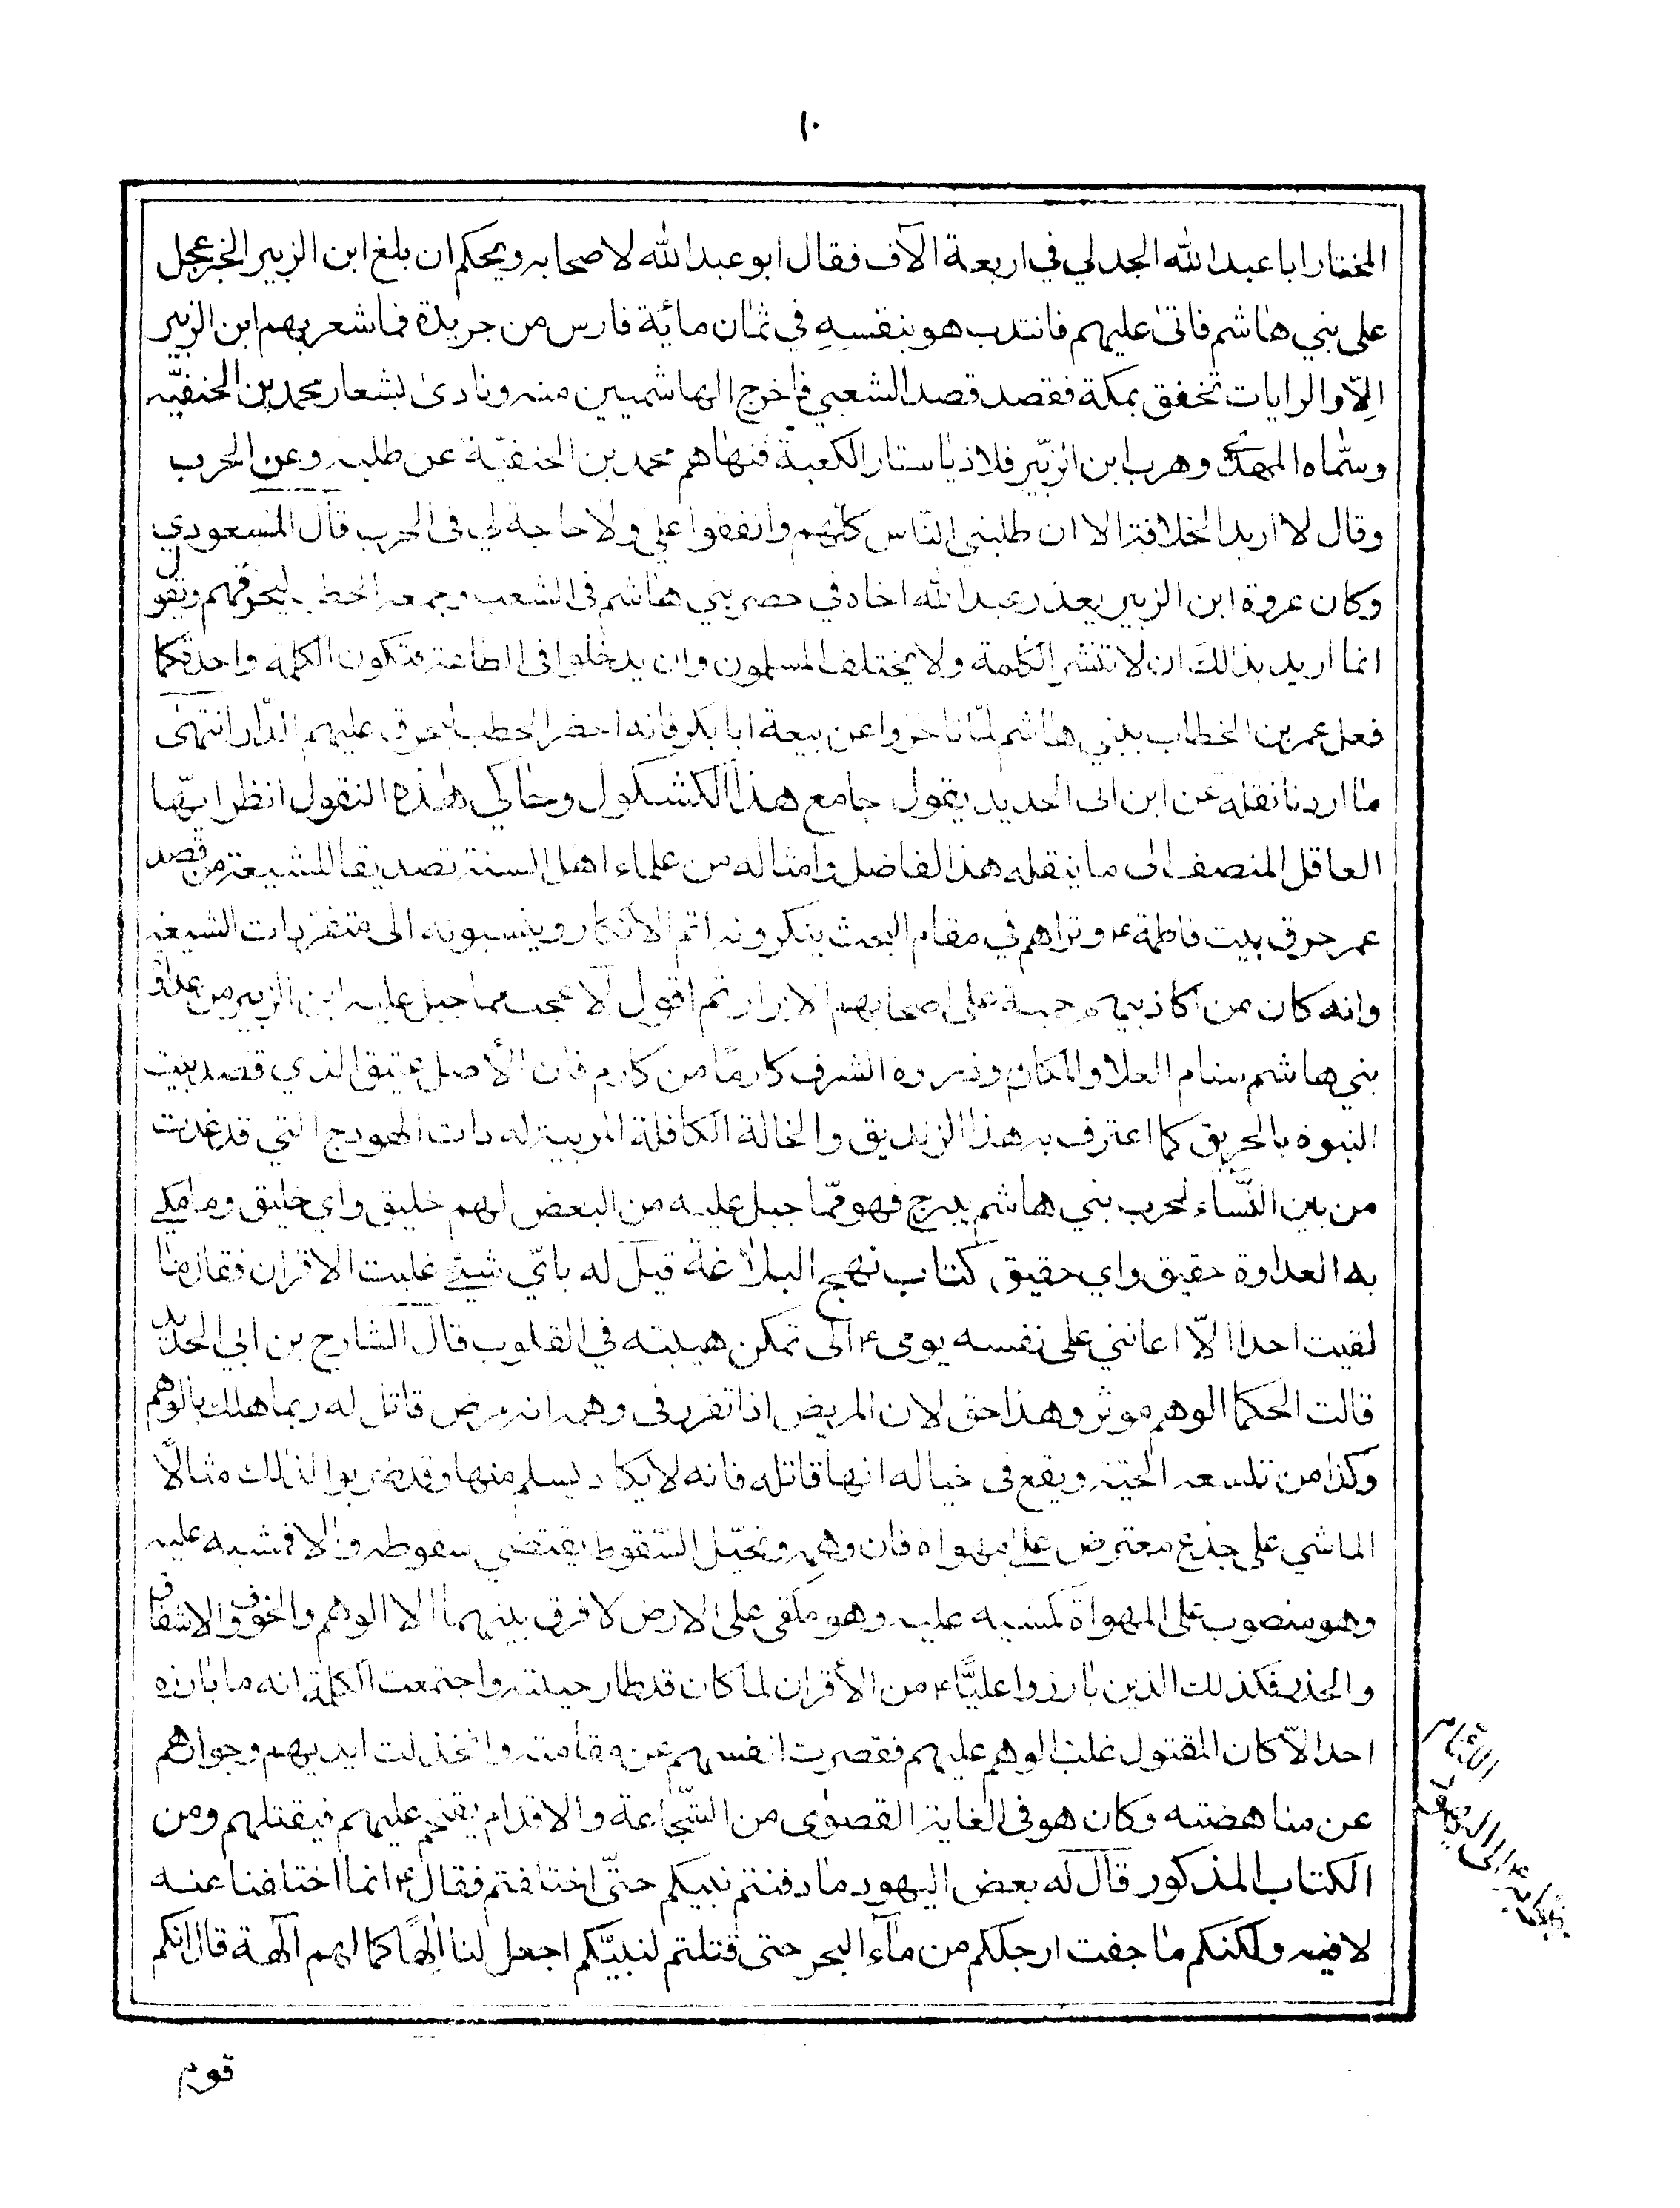 ١٠
المختار ابا عبد الله الجدلي في اربعة الآف فقال ابو عبد الله لاصحابه ويحكم ان بلغ ابن الزبير الخبر عجل
على بني هاشم فاتى عليهم فانتدب هو بنفسه في ثمان مائة فارس من جريدة فما شعر بهم ابن الزبير
الّا والرايات تخفق بمكة فقصد قصد الشعب فاخرج الهاشميين منه ونادى بشعار محمد بن الحنفيّه
وسمّاه المهدي وهرب ابن الزبير فلاذ باستار الكعبة فنهاهم محمد بن الحنفيّة عن طلبه وعن الحرب
وقال لا اريد الخلافة الا ان طلبني النّاس كلّهم واتفقوا علي ولا حاجة لي في الحرب قال المسعودي
وكان عروة ابن الزبير يعذر عبد الله اخاه في حصر بني هاشم في الشعب وجمعه الحطب ليحرقهم ويقول
انما اريد بذلك ان لا تنتشر الكلمة ولا يختلف المسلمون وان يدخلوا في الطاعة فتكون الكلمة واحدة كما
فعل عمر بن الخطاب ببني هاشم لمّا تاخروا عن بيعة ابا بكر فانه احضر الحطب ليحرق عليهم الدّار انتهى
ما اردنا نقله عن ابن ابى الحديد يقول جامع هذا الكشكول وحاكي هذه النقول انظر ايّها
العاقل المنصف الى ما ينقله هذا لفاضل وامثاله من علماء اهل السنة تصديقا للشيعة من قصد
عمر حرق بيت فاطمة ع وتراهم في مقام البحث ينكرونه اتم الانكار وينسبونه الى متفردات الشيعة
وانه كان من اكاذيبهم على اصحابهم الابرار ثم اقول لا عجب مما جبل عليه ابن الزبير من عداوة
بني هاشم سنام العلا والمكان وذروة الشرف كارمًا من كارم فان الأصل عتيق الذي قصد بيت
النبوة بالحريق كما اعترف به هذا الزنديق والخالة الكافلة المربية له ذات الهودج التي قد غدت
من بين النّساء لحرب بني هاشم يبرح فهو ممّا جبل عليه من البعض لهم خليق واي خليق وما
به العداوة حقيق واي حقيق كتاب نهج البلاغة قيل له بايّ شيئ غلبت الاقران فقال ما
لقيت احدا الّا اعانني على نفسه يومى ع الى تمكن هيبته في القلوب قال الشارح بن ابي الحديد
قالت الحكما الوهم موثر وهذا حق لان المريض اذا تقرر في وهمه انه مرض قاتل له ربما هلك بالوهم
وكذا من تلسعه الحيّة ويقع في خياله انها قاتله فانه لا يكاد يسلم منها وقد ضربوا لذلك مثالًا
الماشي على جذع معترض على مهواة فان وهمه وتخيّل السّقوط يقتضي سقوطه والا فمشيه عليه
وهو منصوب على المهواة كمشيه عليه وهو ملقى على الارض لا فرق بينهما الا الوهم والخوف والاشفاق
والحذر فكذلك الذين بارزوا عليًّا ع من الأقران لما كان قد طار صيته واجتمعت الكلمة انه ما بارزه
احد الّا كان المقتول غلب الوهم عليهم فقصرت انفسهم عن مقاومته وانخذلت ايديهم وجوارهم
عن مناهضته وكان هو في الغاية القصوى من الشّجاعة والاقدام يقتحم عليهم فيقتلهم ومن
الكتاب المذكور قال له بعض اليهود ما دفنتم نبيكم حتّى اختلفتم فقال ع انما اختلفنا عنه
لا فيه ولكنكم ما جفت ارجلكم من مآء البحر حتى قتلتم لنبيّكم اجعل لنا الٰهًا كما لهم آلهة قال انكم
قوم